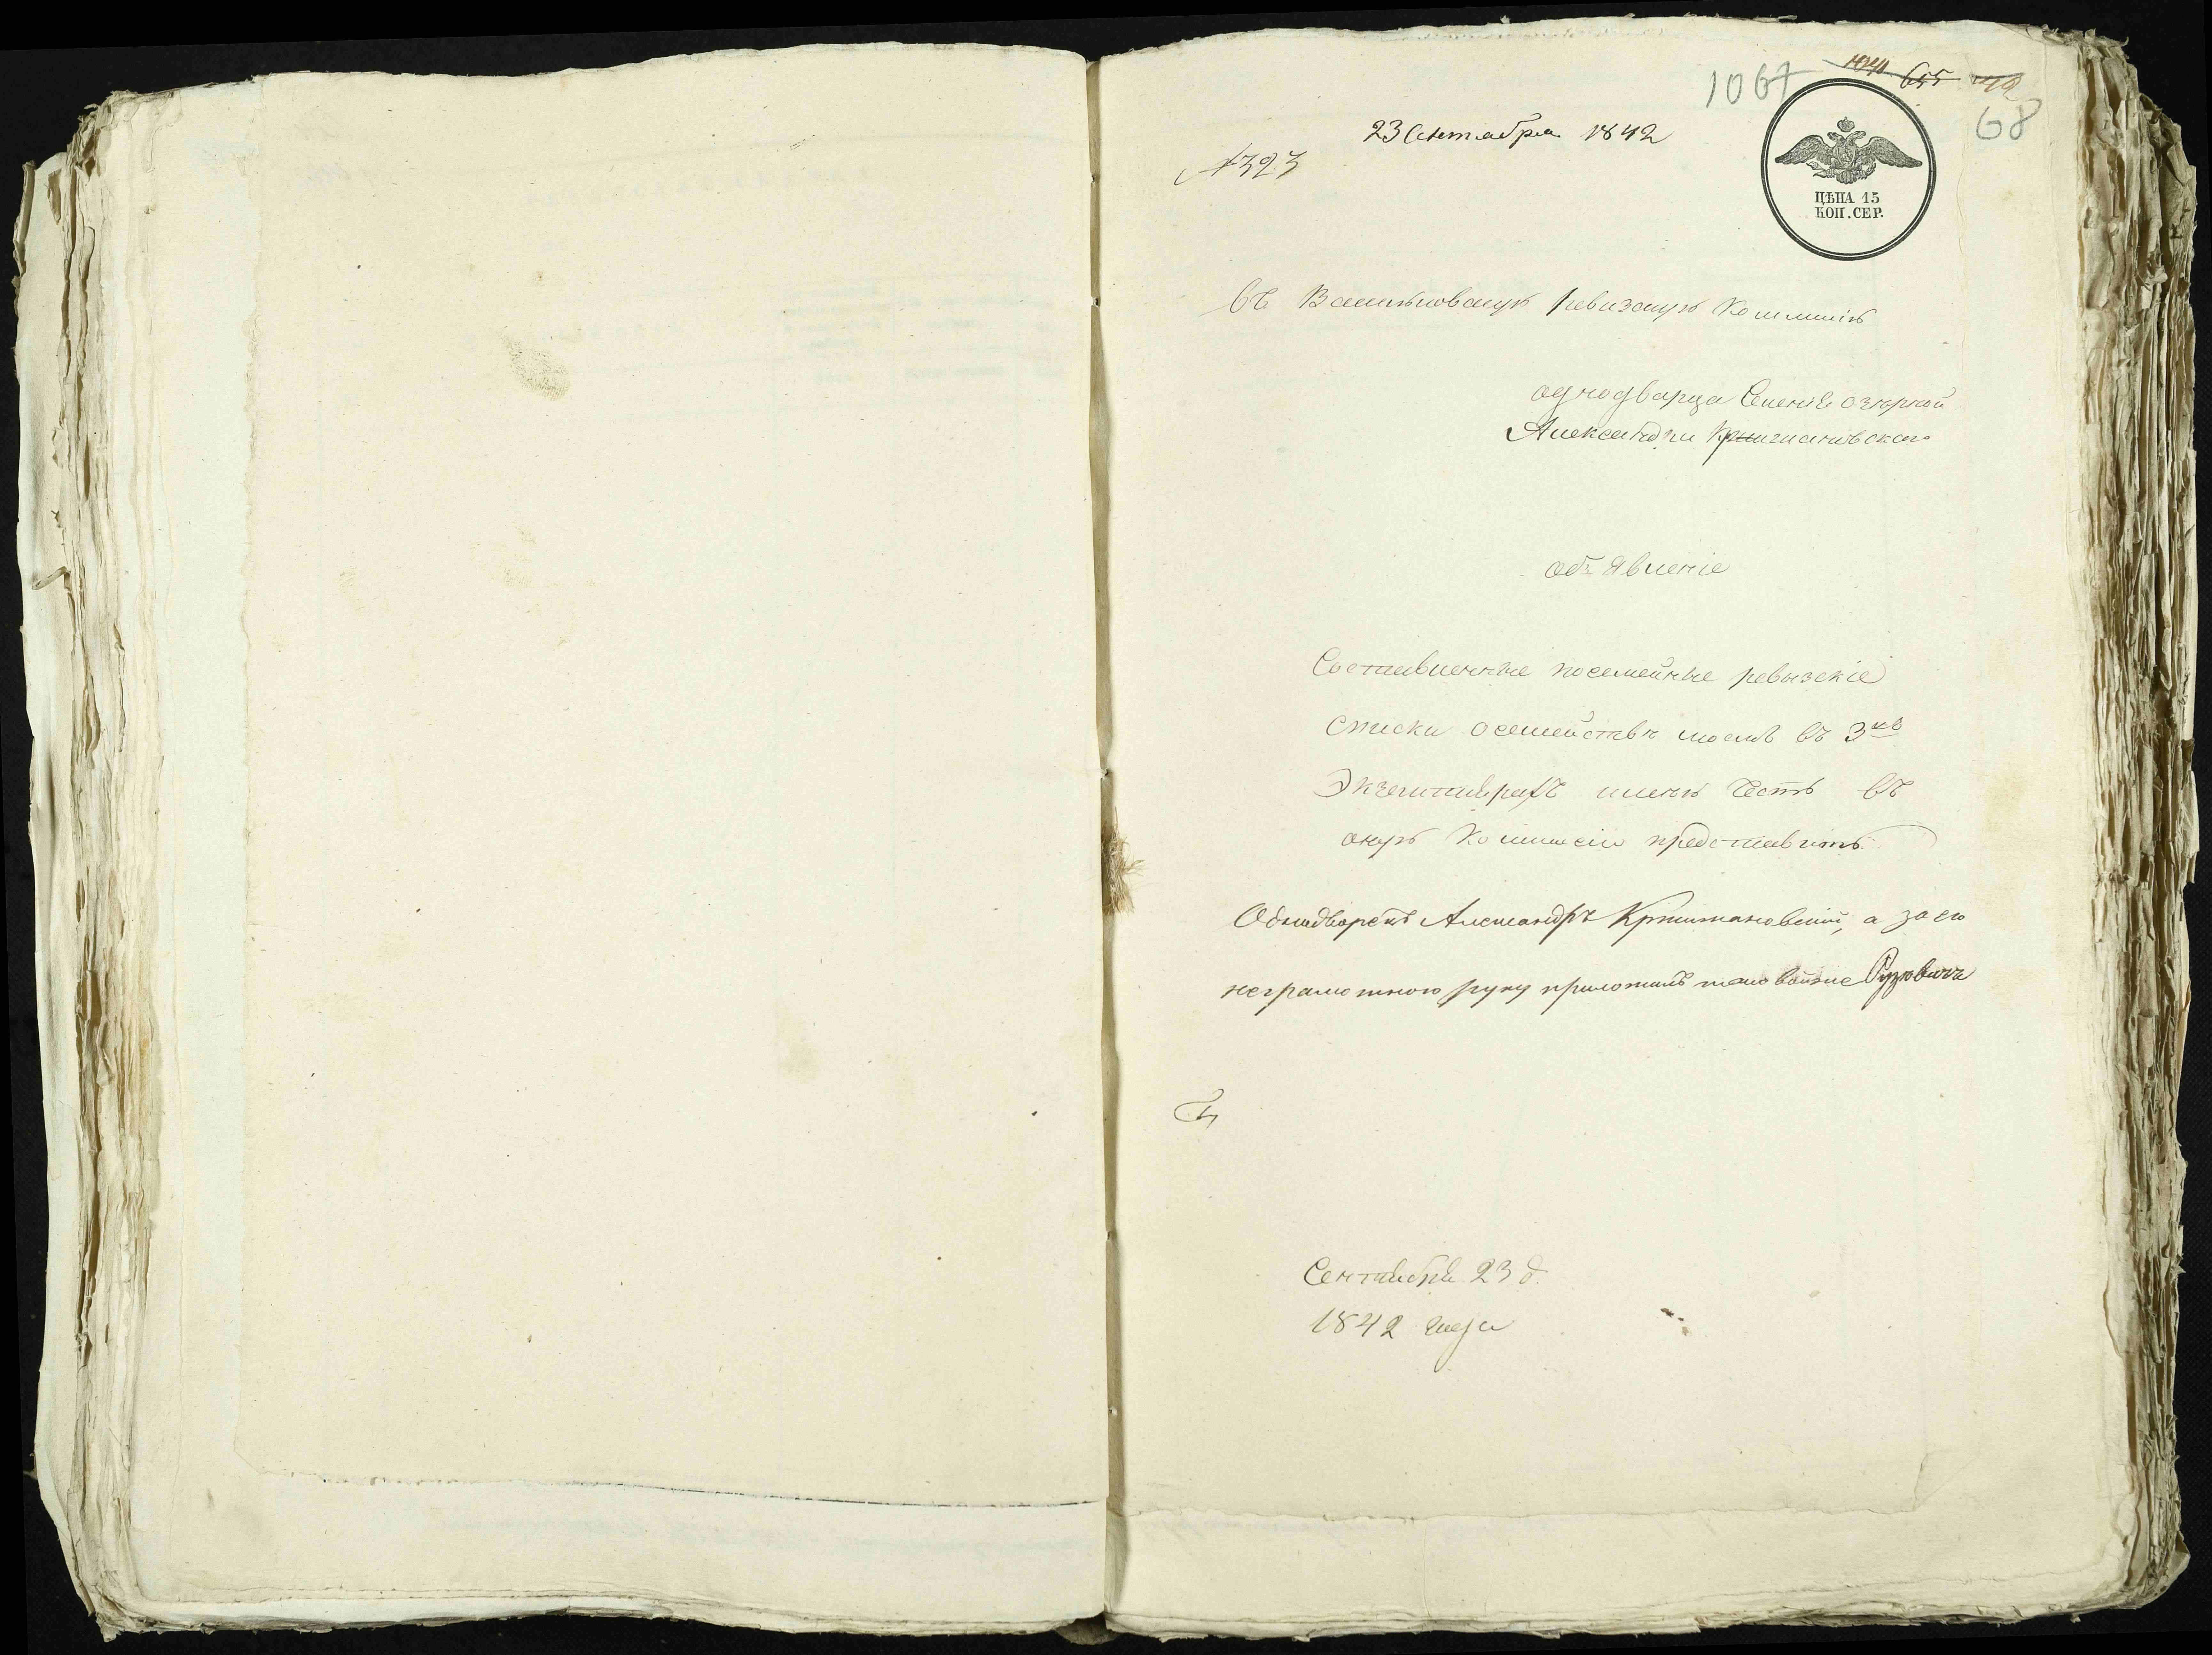 1067 655 42
68
23 Сентября 1842
№ 323
ЦѢНА 15
КОП. СЕР.
въ Васильковскую ревизскую Коммисію
однодворца Селенія Озѣрной
Александра Кржижановскаго
объявленіе
Составленные посемейные ревызскіе
списки о семействѣ моемъ въ 3хъ
Экземплерахъ имею Честь въ
оную Коммисію представить
Однодворецъ Александръ Кржижановский, а за его
неграмотного руку приложилъ
Сентября 23 д.
1842 года